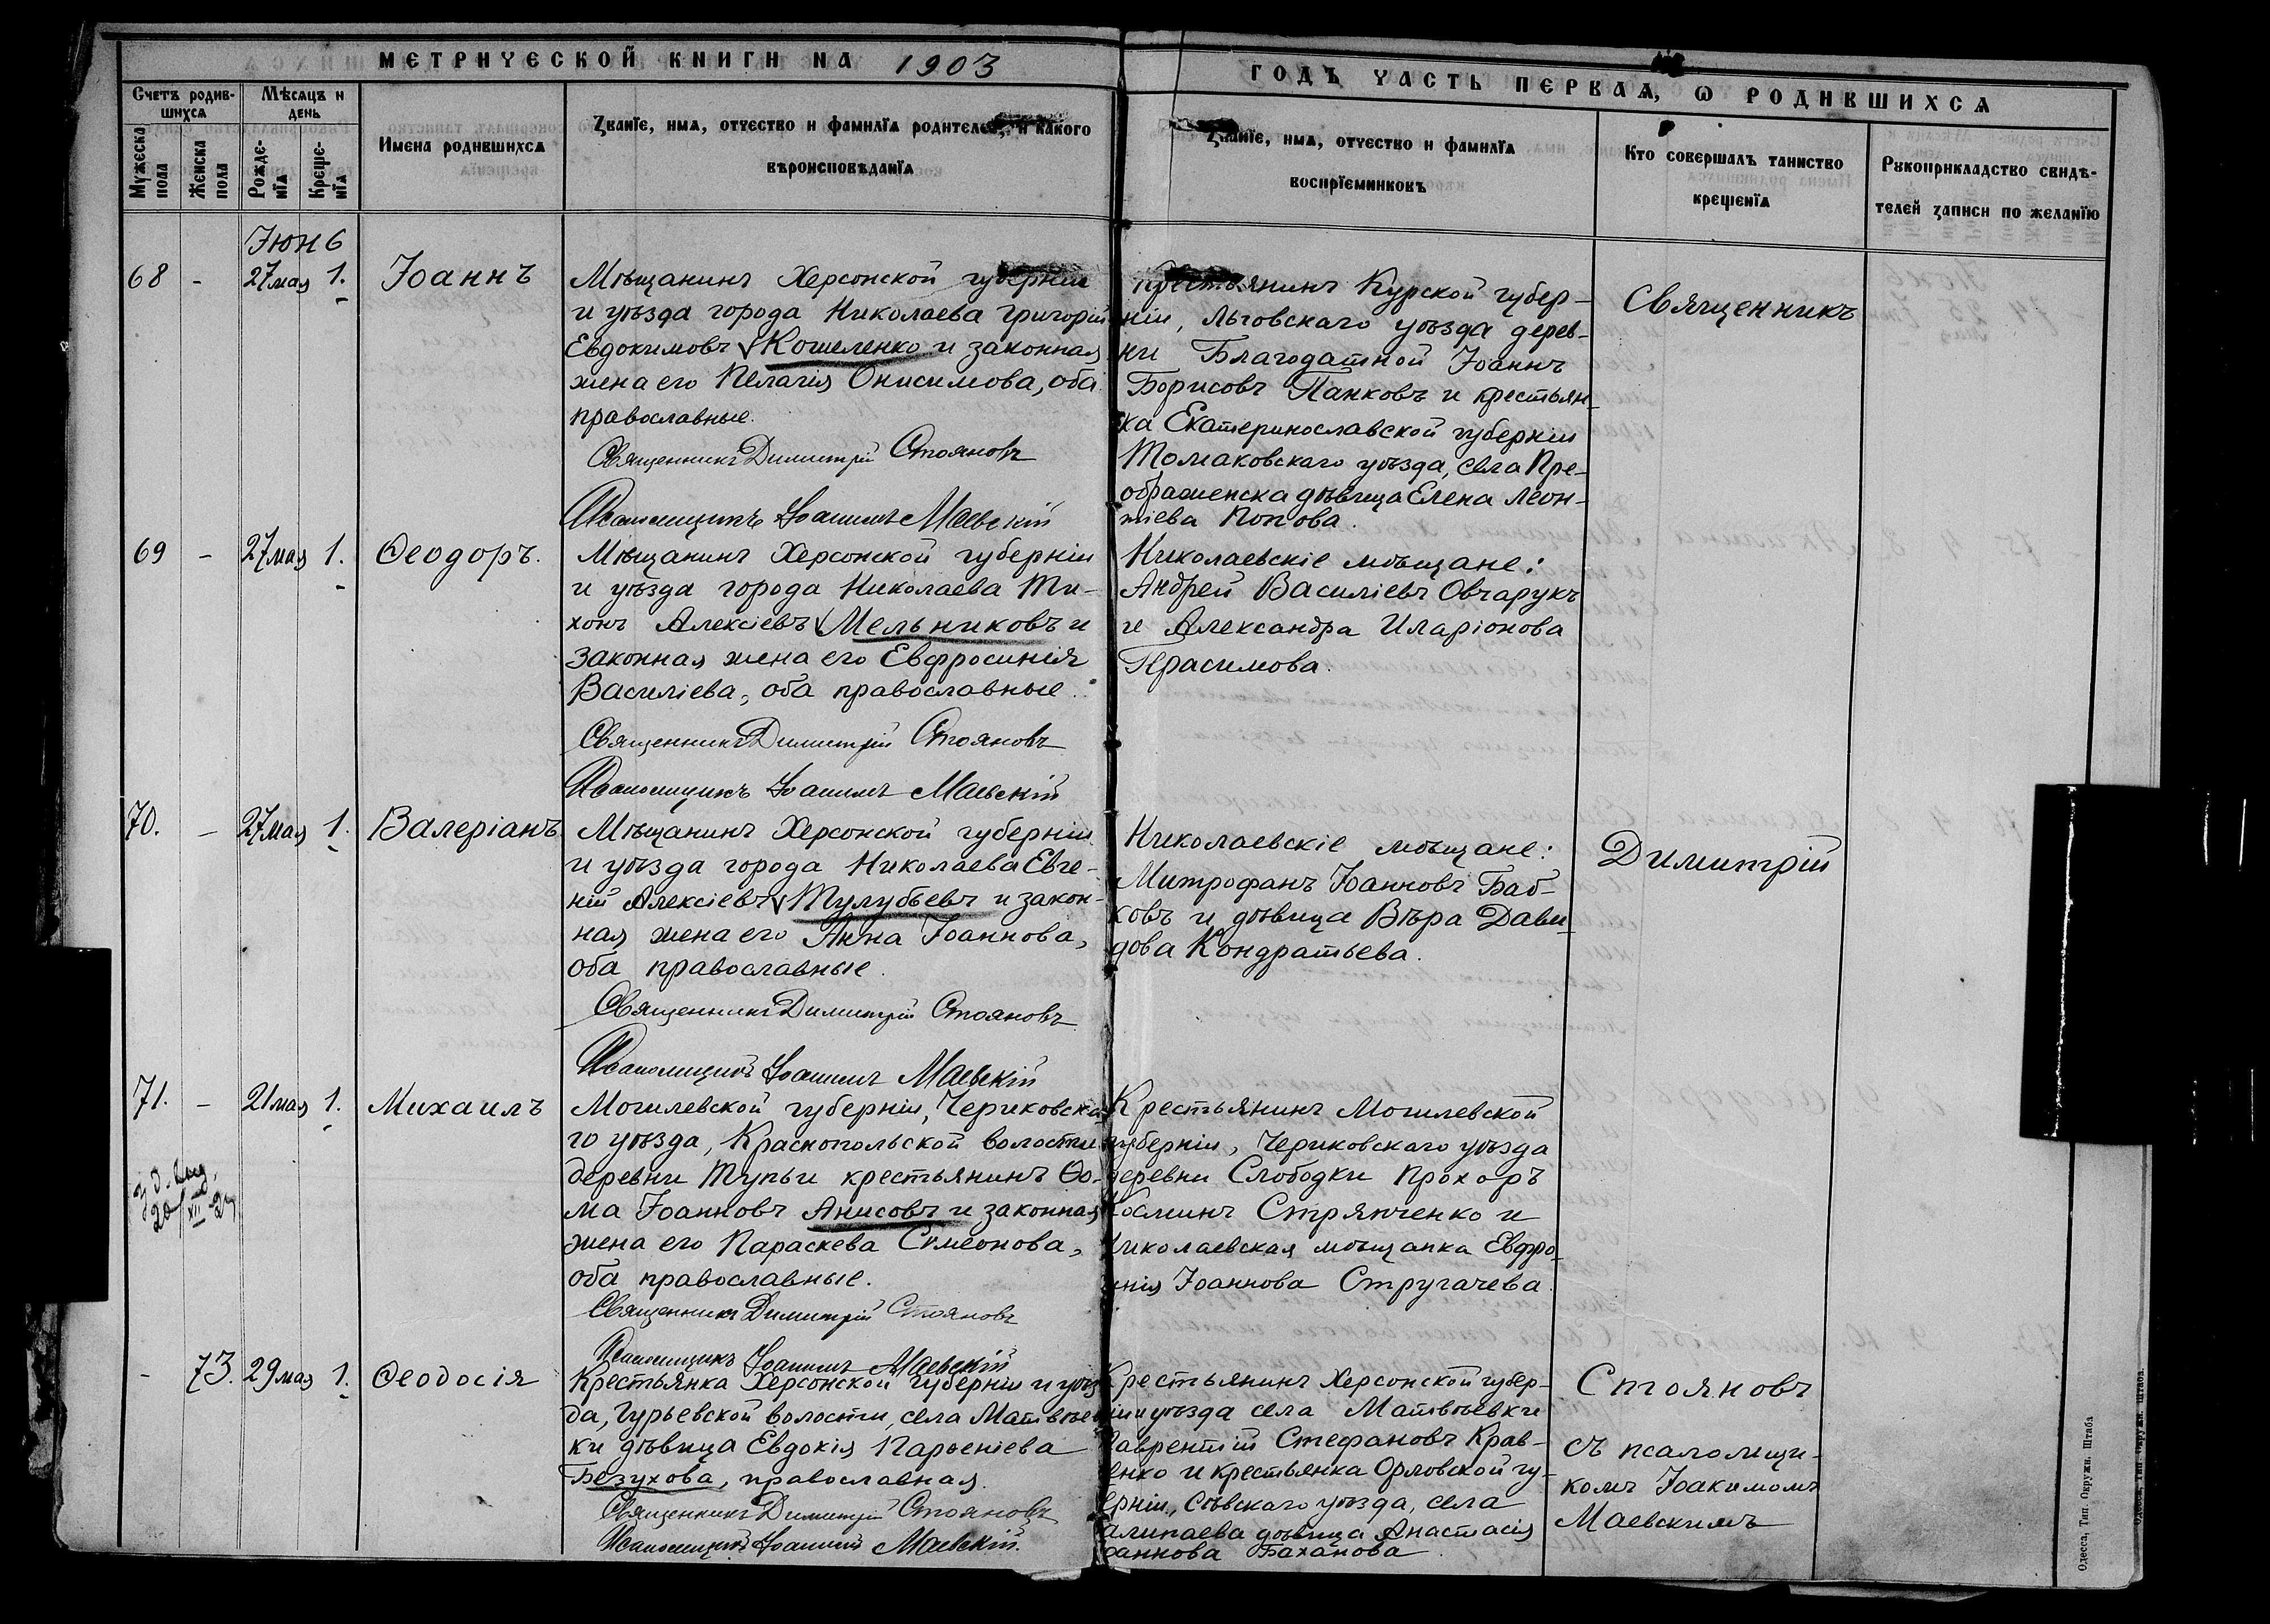 МЕТРИЧЕСКОЙ КНИГИ НА 1903
ГОДЪ ЧАСТЬ ПЕРВАЯ, Ѡ РОДИВШИХСЯ
Счетъ родив-
шихся
Мужеска
пола
Женска
пола
Мѣсяцъ и
день
Рожде-
нїя
Креще-
нїя
Имена родившихся
Званїе, имя, отчество и фамилїя родителей, и какого
вѣроисповѣданїя
Званїе, имя, отчество и фамилїя
воспрїемниковъ
Кто совершалъ таинство
крещенїя
Рукоприкладство свидѣ-
телей записи по желанїю
68 - 27 мая 1. Іоаннъ
Мѣщанинъ Херсонской губерніи
и уѣзда города Николаева Григорій
Евдокимовъ Кошеленко и законная
жена его Пелагія Онисимова, оба
православные.
Священникъ Димитрій Стояновъ
Псаломщикъ Іоакимъ Маевскій
Крестьянинъ Курской губер-
ніи, Льговскаго уѣзда дерев-
ни Благодатной Іоаннъ
Борисовъ Панковъ и крестьян-
ка Екатеринославской губерніи
Томаковскаго уѣзда, села Пре-
ображенска дѣвица Елена Леон-
тіева Попова.
69 - 27 мая 1. Ѳеодоръ.
Мѣщанинъ Херсонской губерніи
и уѣзда города Николаева Ти-
хонъ Алексіевъ Мельниковъ и
законная жена его Евфросинія
Василіева, оба православные.
Священникъ Димитрій Стояновъ
Псаломщикъ Іоакимъ Маевскій
Николаевскіе мѣщане:
Андрей Василіевъ Овчарукъ
и Александра Иларіонова
Герасимова.
70. - 27 мая 1. Валеріанъ.
Мѣщанинъ Херсонской губерніи
и уѣзда города Николаева Евге-
ній Алексіевъ Тулубьевъ и закон-
ная жена его Анна Іоаннова,
оба православные.
Священникъ Димитрій Стояновъ
Псаломщикъ Іоакимъ Маевскій
Николаевскіе мѣщане:
Митрофанъ Іоанновъ Баб-
ковъ и дѣвица Вѣра Дави-
дова Кондратьева.
71. - 21 мая 1. Михаилъ
Могилевской губерніи, Чериковска-
го уѣзда, Краснопольской волости
деревни Тупьи крестьянинъ Ѳо-
ма Іоанновъ Анисовъ и законная
жена его Параскева Симеонова,
оба православные.
Священникъ Димитрій Стояновъ
Псаломщикъ Іоакимъ Маевскій
Крестьянинъ Могилевской
губерніи, Чериковскаго уѣзда
деревни Слободки Прохоръ
Косминъ Стряпченко и
Николаевская мѣщанка Евфро-
инія Іоаннова Стругачева.
- 73. 29 мая 1. Ѳеодосія
Крестьянка Херсонской губерніи и уѣз
да, Гурьевской волости, села Матвѣев
ки дѣвица Евдокія Парѳеніева
Безухова, православная.
Священникъ Димитрій Стояновъ
Псаломщикъ Іоакимъ Маевскій.
Крестьянинъ Херсонской губер-
ніи и уѣзда села Матвѣевки
Лаврентій Стефановъ Крав-
енко и крестьянка Орловской гу-
ерніи, Сѣвскаго уѣзда, села
дѣвица Анастасія
оаннова Баханова.
Священникъ
Димитрій
Стояновъ
съ псаломщи-
комъ Іоакимомъ
Маевскимъ
Одесса, Тип. Окружн. Штаба